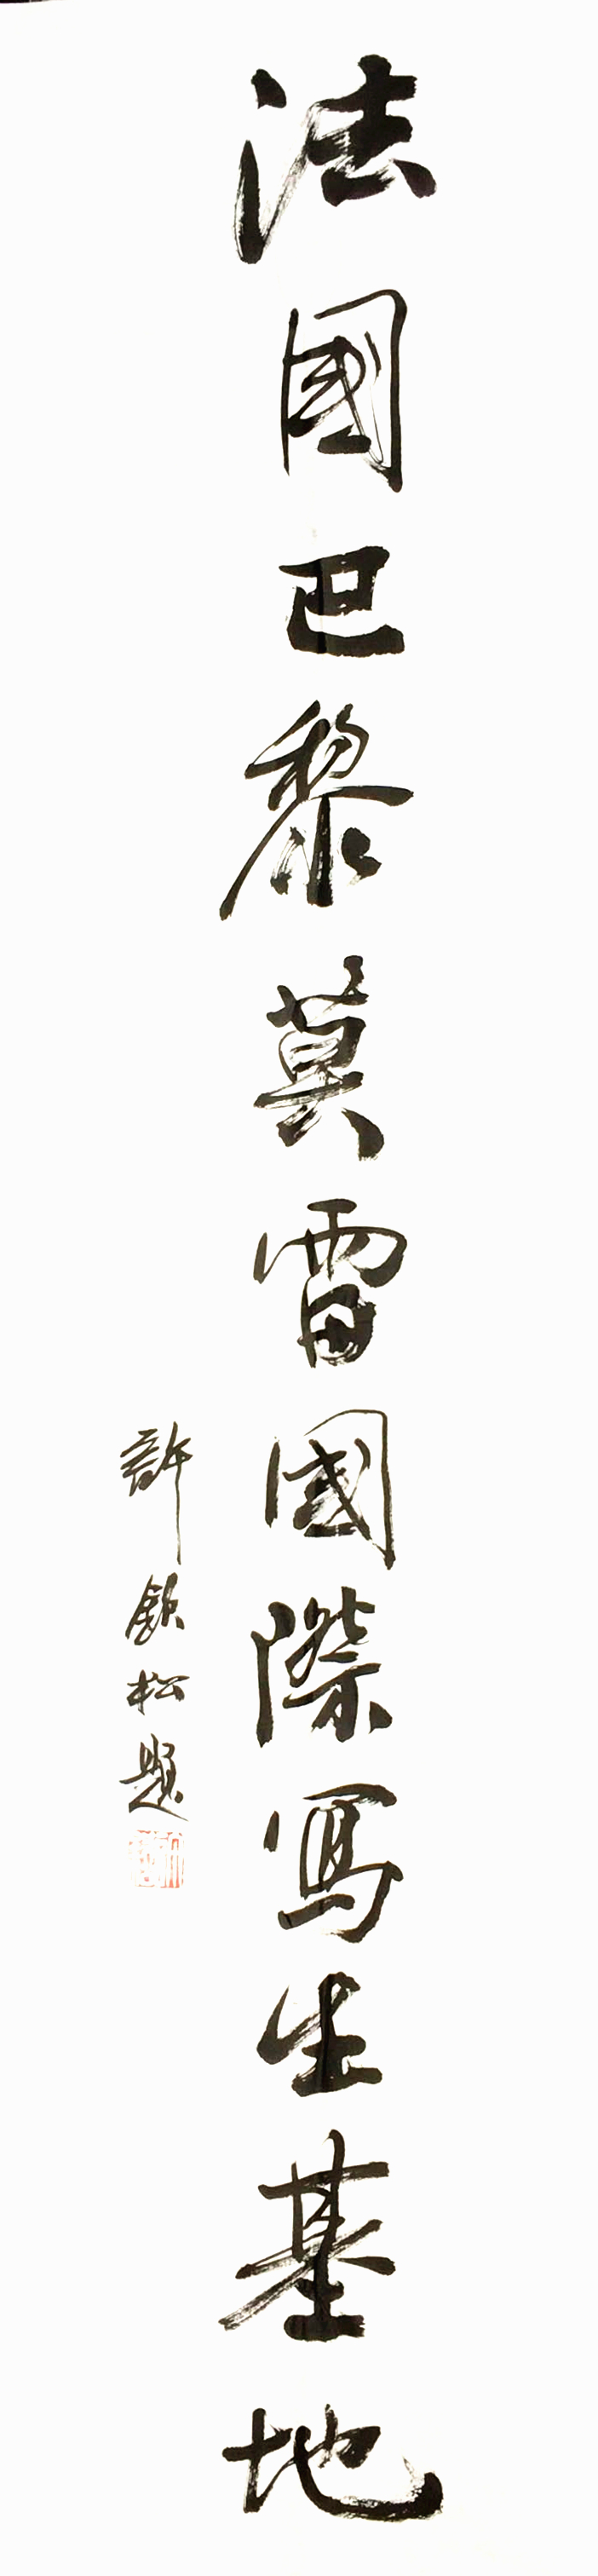 法國巴黎莫雷國際寫生基地
許欽松題